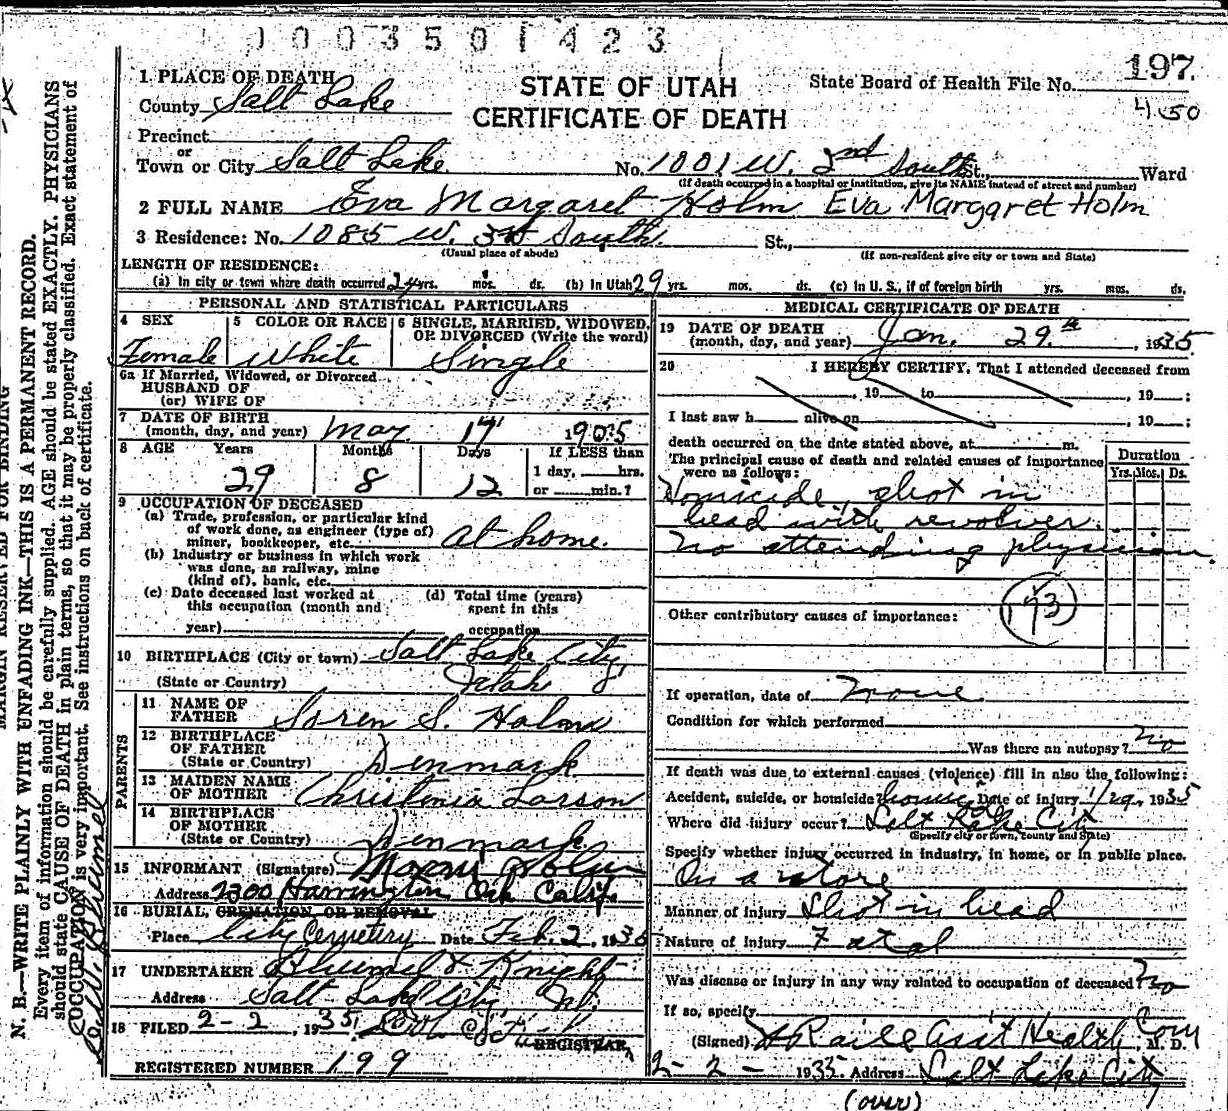 1003501423
197.
450
STATE OF UTAH
CERTIFICATE OF DEATH
State Board of Health File No.
1 PLACE OF DEATH
County Salt Lake
Precinct
or
Town or City Salt Lake No. 1001 W. 2nd South St., Ward
(If death occurred in a hospital or institution, give its NAME instead of street and number)
2 FULL NAME Eva Margaret Holm Eva Margaret Holm
3 Residence: No. 1085 W. 3rd South St.,
(Usual place of abode) (If non-resident give city or town and State)
LENGTH OF RESIDENCE:
(a) In city or town where death occurred 24 yrs. mos. ds. (b) In Utah 29 yrs. mos. ds. (c) In U. S., if of foreign birth yrs. mos. ds.
PERSONAL AND STATISTICAL PARTICULARS
4 SEX
Female
5 COLOR OR RACE
White
6 SINGLE, MARRIED, WIDOWED,
OR DIVORCED (Write the word)
Single
6a If Married, Widowed, or Divorced
HUSBAND OF
(or) WIFE OF
7 DATE OF BIRTH
(month, day, and year) May 17 1905
8 AGE Years Months Days If LESS than
29 8 12 1 day, hrs.
or min.?
9 OCCUPATION OF DECEASED
(a) Trade, profession, or particular kind
of work done, as engineer (type of)
miner, bookkeeper, etc. at home.
(b) Industry or business in which work
was done, as railway, mine
(kind of), bank, etc.
(c) Date deceased last worked at
this occupation (month and
year)
(d) Total time (years)
spent in this
occupation
10 BIRTHPLACE (City or town) Salt Lake City
(State or Country) Utah
PARENTS
11 NAME OF
FATHER Soren S. Holm
12 BIRTHPLACE
OF FATHER
(State or Country) Denmark
13 MAIDEN NAME
OF MOTHER Christinia Larson
14 BIRTHPLACE
OF MOTHER
(State or Country) Denmark
15 INFORMANT (Signature) Holm
Address 2300 Harrington Oak Calif.
16 BURIAL, CREMATION, OR REMOVAL
Place City Cemetery Date Feb. 2, 1935
17 UNDERTAKER & Knight
Address Salt Lake City Ut.
18 FILED 2-2, 1935
REGISTRAR
REGISTERED NUMBER 199
MEDICAL CERTIFICATE OF DEATH
19 DATE OF DEATH
(month, day, and year) Jan. 29th, 1935
20 I HEREBY CERTIFY, That I attended deceased from
, 19 to , 19 ;
I last saw h alive on , 19 ;
death occurred on the date stated above, at m.
The principal cause of death and related causes of importance
were as follows:
Duration
Yrs. Mos. Ds.
Homicide, shot in
head with revolver.
No attending physician
193
Other contributory causes of importance:
If operation, date of None
Condition for which performed
Was there an autopsy? No
If death was due to external causes (violence) fill in also the following:
Accident, suicide, or homicide? Date of injury 1/29, 1935
Where did injury occur? Salt Lake City
(Specify city or town, county and State)
Specify whether injury occurred in industry, in home, or in public place.
In a store
Manner of Injury Shot in head
Nature of Injury Fatal
Was disease or injury in any way related to occupation of deceased? No
If so, specify
(Signed) Asst Health Com M. D.
2-2- 1935. Address Salt Lake City
(over)
MARGIN RESERVED FOR BINDING
N. B.—WRITE PLAINLY WITH UNFADING INK—THIS IS A PERMANENT RECORD.
Every item of information should be carefully supplied. AGE should be stated EXACTLY. PHYSICIANS
should state CAUSE OF DEATH in plain terms, so that it may be properly classified. Exact statement of
OCCUPATION is very important. See instructions on back of certificate.